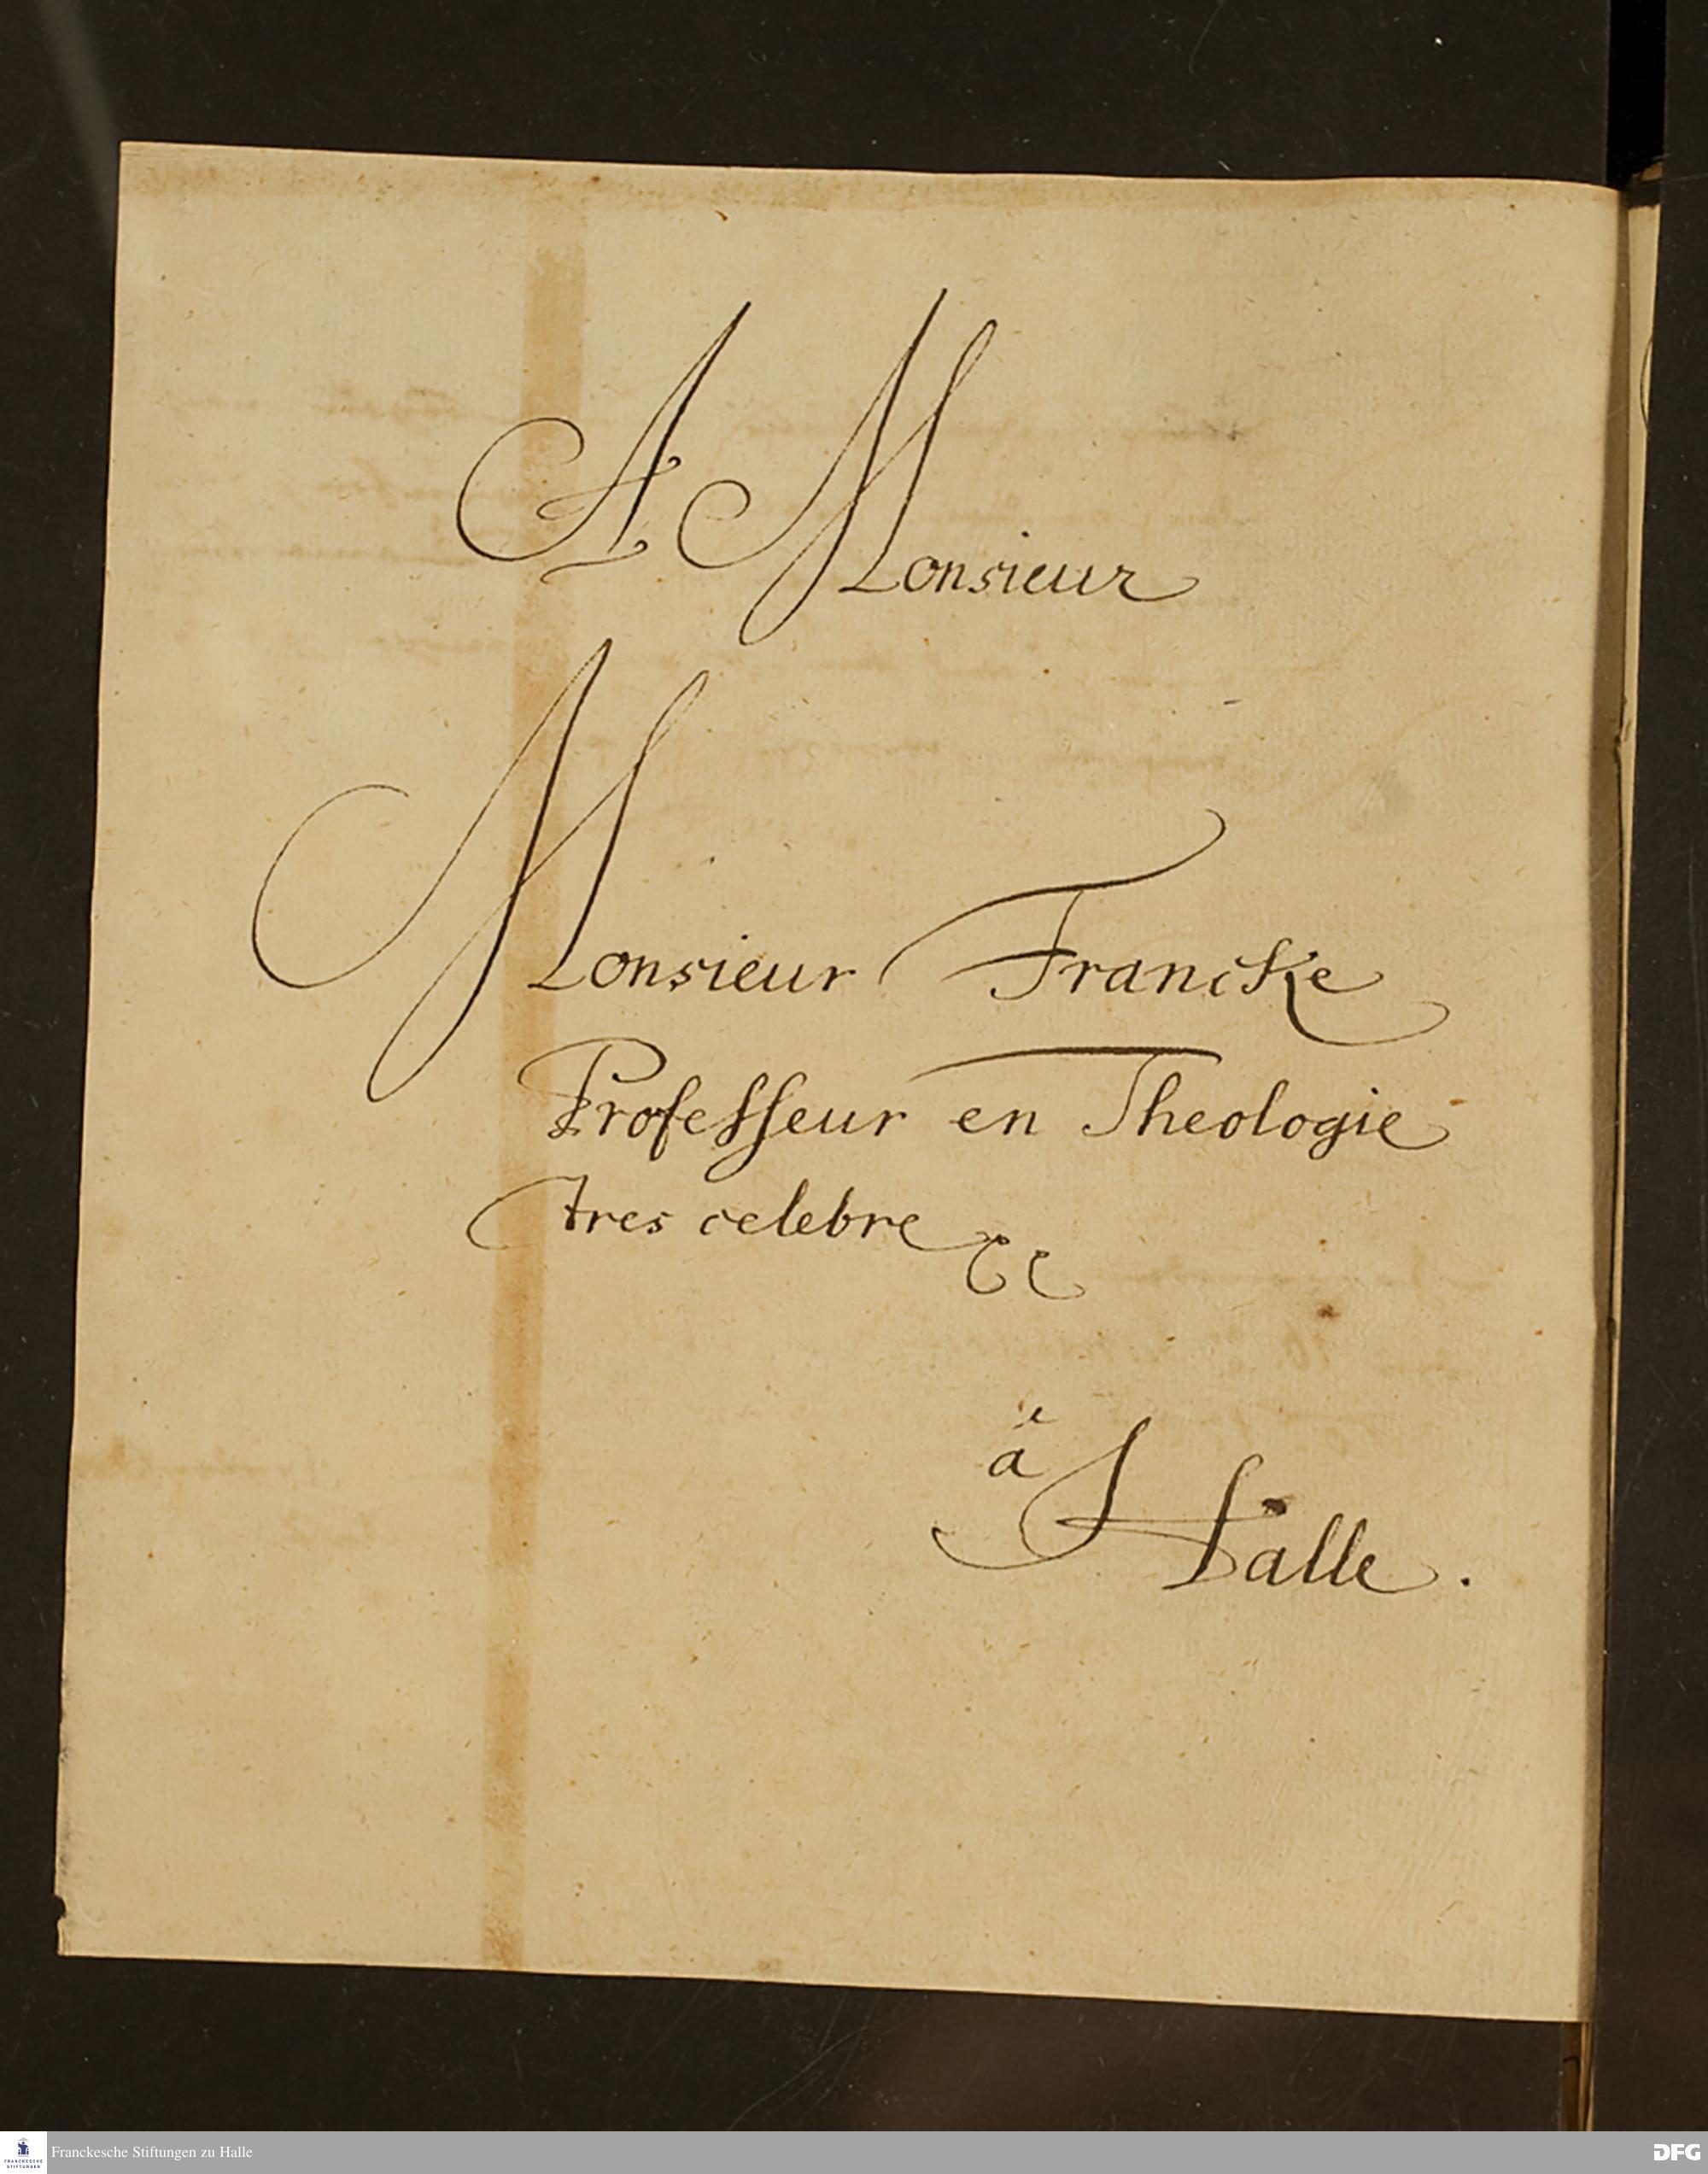 A Monsieur
Monsieur Francke
Professeur en Theologie
tres celebre
à
Halle.
Franckesche Stiftungen zu Halle
FRANCKESCHE
STIFTUNGEN
DFG